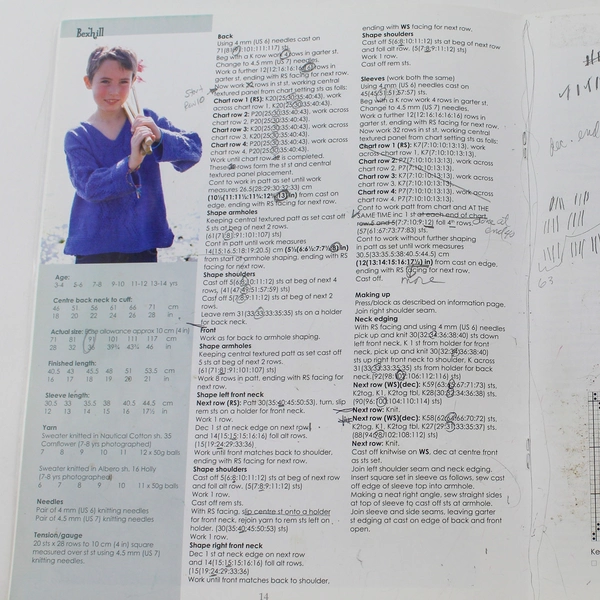 Bexhill
Age:
3-4 5-6 7-8 9-10 11-12 13-14 yrs
Centre back neck to cuff:
46 51 56 61 66 71 cm
18 20 22 24 26 28 in
Actual size: Ease allowance approx 10 cm (4 in)
71 81 91 101 111 117 cm
28 32 36 39¾ 43¾ 46 in
Finished length:
40.5 43 45.5 48 51 53.5 cm
16 17 18 19 20 21 in
Sleeve length:
30.5 33 35.5 38 40.5 44.5 cm
12 13 14 15 16 17½ in
Yarn
Sweater knitted in Nautical Cotton sh. 35
Cornflower (7-8 yrs photographed)
7 8 9 10 11 12 x 50g balls
Sweater knitted in Albero sh. 16 Holly
(7-8 yrs photographed)
6 7 8 9 10 11 x 50g balls
Needles
Pair of 4 mm (US 6) knitting needles
Pair of 4.5 mm (US 7) knitting needles
Tension/gauge
20 sts x 28 rows to 10 cm (4 in) square
measured over st st using 4.5 mm (US 7)
knitting needles.
Back
Using 4 mm (US 6) needles cast on
71(81:91:101:111:117) sts.
Beg with a K row work 4 rows in garter st.
Change to 4.5 mm (US 7) needles.
Work a further 12(12:16:16:16:16) rows in
garter st, ending with RS facing for next row.
Now work 32 rows in st st, working central
textured panel from chart setting sts as folls:
Chart row 1 (RS): K20(25:30:35:40:43), work
across chart row 1, K20(25:30:35:40:43).
Chart row 2: P20(25:30:35:40:43), work across
chart row 2, P20(25:30:35:40:43).
Chart row 3: K20(25:30:35:40:43), work across
chart row 3, K20(25:30:35:40:43).
Chart row 4: P20(25:30:35:40:43), work across
chart row 4, P20(25:30:35:40:43).
Work until chart row is completed.
These rows form the st st and central
textured panel placement.
Cont to work in patt as set until work
measures 26.5(28:29:30:32:33) cm
from cast on
edge, ending with RS facing for next row.
Shape armholes
Keeping central textured patt as set cast off
5 sts at beg of next 2 rows.
(61(71:81:91:101:107) sts)
Cont in patt until work measures
from start of armhole shaping, ending with RS
facing for next row.
Shape shoulders
Cast off 5(6:8:10:11:12) sts at beg of next 4
rows. (41(47:49:51:57:59) sts)
Cast off 5(7:8:9:11:12) sts at beg of next 2
rows.
Leave rem 31(33:33:33:35:35) sts on a holder
for back neck.
Front
Work as for back to armhole shaping.
Shape armholes
Keeping central textured patt as set cast off
5 sts at beg of next 2 rows.
(61(71:81:91:101:107) sts)
Work 8 rows in patt, ending with RS facing for
next row.
Shape left front neck
Next row (RS): Patt 30(35:40:45:50:53), turn, slip
rem sts on a holder for front neck.
Work 1 row.
Dec 1 st at neck edge on next row
and 14(15:15:15:16:16) foll alt rows.
(15(19:24:29:33:36))
Work until front matches back to shoulder,
ending with RS facing for next row.
Shape shoulders
Cast off 5(6:8:10:11:12) sts at beg of next row
and foll alt row. (5(7:8:9:11:12) sts)
Work 1 row.
Cast off rem sts.
With RS facing, slip centre st onto a holder
for front neck, rejoin yarn to rem sts left on
holder. (30(35:40:45:50:53) sts)
Work 1 row.
Shape right front neck
Dec 1 st at neck edge on next row
and 14(15:15:15:16:16) foll alt rows.
(15(19:24:29:33:36))
Work until front matches back to shoulder,
ending with WS facing for next row.
Shape shoulders
Cast off 5(6:8:10:11:12) sts at beg of next row
and foll alt row. (5(7:8:9:11:12) sts)
Work 1 row.
Cast off rem sts.
Sleeves (work both the same)
Using 4 mm (US 6) needles cast on
45(45:51:51:57:57) sts.
Beg with a K row work 4 rows in garter st.
Change to 4.5 mm (US 7) needles.
Work a further 12(12:16:16:16:16) rows in
garter st, ending with RS facing for next row.
Now work 32 rows in st st, working central
textured panel from chart setting sts as folls:
Chart row 1 (RS): K7(7:10:10:13:13), work
across chart row 1, K7(7:10:10:13:13).
Chart row 2: P7(7:10:10:13:13), work across
chart row 2, P7(7:10:10:13:13).
Chart row 3: K7(7:10:10:13:13), work across
chart row 3, K7(7:10:10:13:13).
Chart row 4: P7(7:10:10:13:13), work across
chart row 4, P7(7:10:10:13:13).
Cont to work patt from chart and AT THE
SAME TIME inc 1 st at each end of chart
(57(61:67:73:77:83) sts)
Cont to work without further shaping
in patt as set until work measures
30.5(33:35.5:38:40.5:44.5) cm
(12(13:14:15:16:17½) in) from cast on edge,
ending with RS facing for next row.
Cast off.
more
Making up
Press/block as described on information page.
Join right shoulder seam.
Neck edging
With RS facing and using 4 mm (US 6) needles
pick up and knit 30(32:34:36:38:40) sts down
left front neck, K 1 st from holder for front
neck, pick up and knit 30(32:34:36:38:40)
sts up right front neck to shoulder, K across
31(33:33:33:35:35) sts from holder for back
Next row (WS)(dec):
Next row: Knit.
Next row (WS)(dec):
Next row: Knit.
Cast off knitwise on WS, dec at centre front
as sts set.
Join left shoulder seam and neck edging.
Insert square set in sleeve as follows, sew cast
off edge of sleeve top into armhole.
Making a neat right angle, sew straight sides
at top of sleeve to cast off sts at armhole.
Join sleeve and side seams, leaving garter
st edging at cast on edge of back and front
open.
14
63